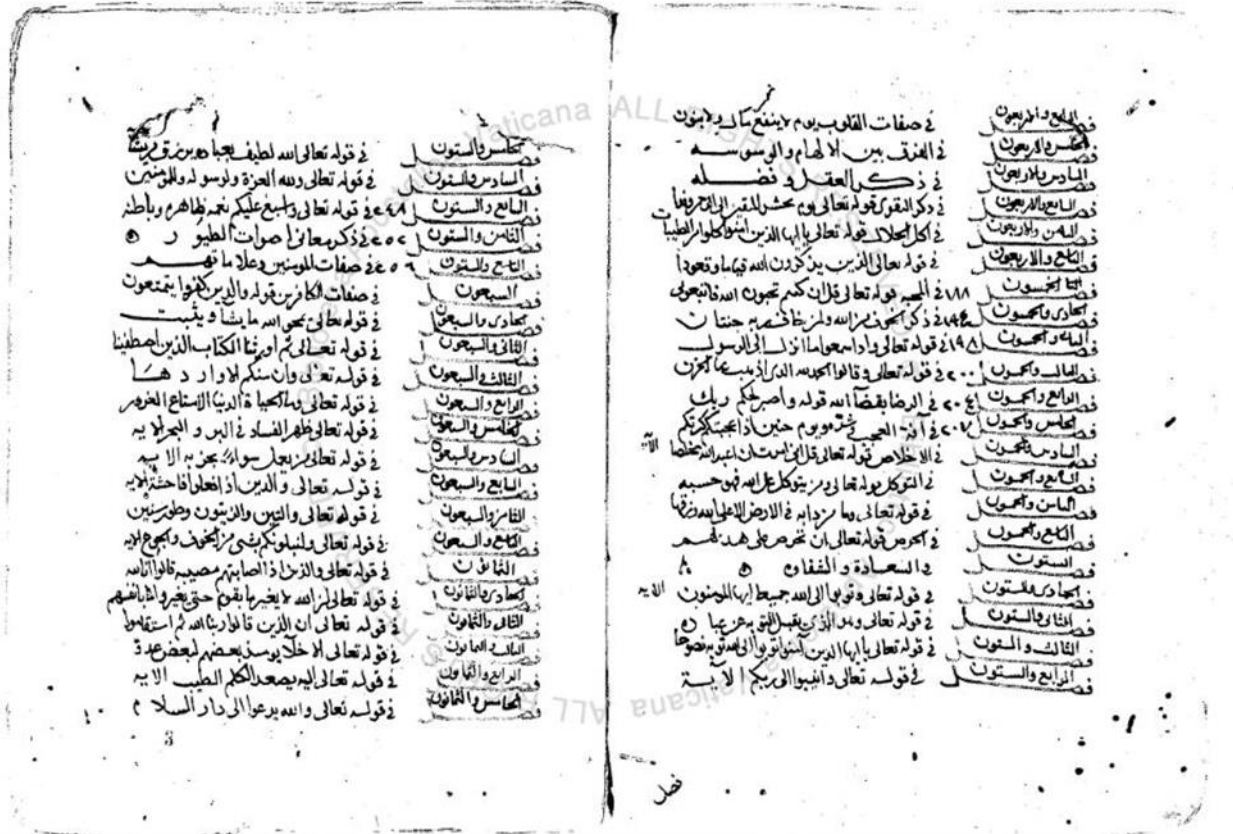 فصل الرابع والاربعون في صفات القلوب يوم لا ينفع مال ولا بنون
فصل الخامس والاربعون في الفرق بين الالهام والوسوسه
فصل السادس والاربعون في ذكر العقل وفضله
فصل السابع والاربعون في ذكر التقوى قوله تعالى يوم نحشر المتقين الى الرحمن وفدا
فصل الثامن والاربعون في اكل الحلال قوله تعالى يا ايها الذين امنوا كلوا من الطيبات
فصل التاسع والاربعون في قوله تعالى الذين يذكرون الله قياما وقعودا
فصل الخمسون ١٨٨ في المحبه قوله تعالى قل ان كنتم تحبون الله فاتبعوني
فصل الحادى والخمسون ١٩٤ في ذكر الخوف من الله ولمن خاف مقام ربه جنتان
فصل الثانى والخمسون ١٩٨ في قوله تعالى واذا سمعوا ما انزل الى الرسول
فصل الثالث والخمسون ٢٠٠ في قوله تعالى وقالوا الحمد لله الذى اذهب عنا الحزن
فصل الرابع والخمسون ٢٠٤ في الرضا بقضآ الله قوله واصبر لحكم ربك
فصل الخامس والخمسون ٢٠٧ في العجب ويوم حنين اذ اعجبتكم كثرتكم
فصل السادس والخمسون في الاخلاص قوله تعالى قل انى امرت ان اعبد الله مخلصا الآيه
فصل السابع والخمسون في التوكل قوله تعالى ومن يتوكل على الله فهو حسبه
فصل الثامن والخمسون في قوله تعالى وما من دابه في الارض الا على الله رزقها
فصل التاسع والخمسون في الحرص قوله تعالى ان تحرص على هداهم
فصل الستون في السعادة والشقاوه
فصل الحادى والستون في قوله تعالى وتوبوا الى الله جميعا ايها المومنون الايه
فصل الثانى والستون في قوله تعالى وهو الذى يقبل التوبه عن عباده
فصل الثالث والستون في قوله تعالى يا ايها الذين آمنوا توبوا الى الله توبه نصوحا
فصل الرابع والستون في قوله تعالى وانيبوا الى ربكم الآية
فصل
فصل الخامس والستون في قوله تعالى الله لطيف بعباده يرزق من يشا
فصل السادس والستون في قوله تعالى ولله العزة ولرسوله وللمومنين
فصل السابع والستون ٢٤٨ في قوله تعالى واسبغ عليكم نعمه ظاهره وباطنه
فصل الثامن والستون ٢٥٢ في ذكر معانى اصوات الطيور
فصل التاسع والستون ٢٥٦ في صفات المومنين وعلاماتهم
فصل السبعون في صفات الكافرين قوله والذين كفروا يتمتعون
فصل الحادى والسبعون في قوله تعالى يمحو الله ما يشا ويثبت
فصل الثانى والسبعون في قوله تعالى ثم اورثنا الكتاب الذين اصطفينا
فصل الثالث والسبعون في قوله تعالى وان منكم الا واردها
فصل الرابع والسبعون في قوله تعالى وما الحياة الدنيا الا متاع الغرور
فصل الخامس والسبعون في قوله تعالى ظهر الفساد في البر والبحر الايه
فصل السادس والسبعون في قوله تعالى من يعمل سواء يجز به الايه
فصل السابع والسبعون في قوله تعالى والذين اذا فعلوا فاحشة الايه
فصل الثامن والسبعون في قوله تعالى والتين والزيتون وطور سنين
فصل التاسع والسبعون في قوله تعالى ولنبلونكم بشى من الخوف والجوع الايه
فصل الثمانون في قوله تعالى والذين اذا اصابتهم مصيبه قالوا انا لله
فصل الحادى والثمانون في قوله تعالى ان الله لا يغير ما بقوم حتى يغيروا ما بانفسهم
فصل الثانى والثمانون في قوله تعالى ان الذين قالوا ربنا الله ثم استقاموا
فصل الثالث والثمانون في قوله تعالى الاخلآ يومئذ بعضهم لبعض عدو
فصل الرابع والثمانون في قوله تعالى اليه يصعد الكلم الطيب الايه
فصل الخامس والثمانون في قوله تعالى والله يدعوا الى دار السلام
3